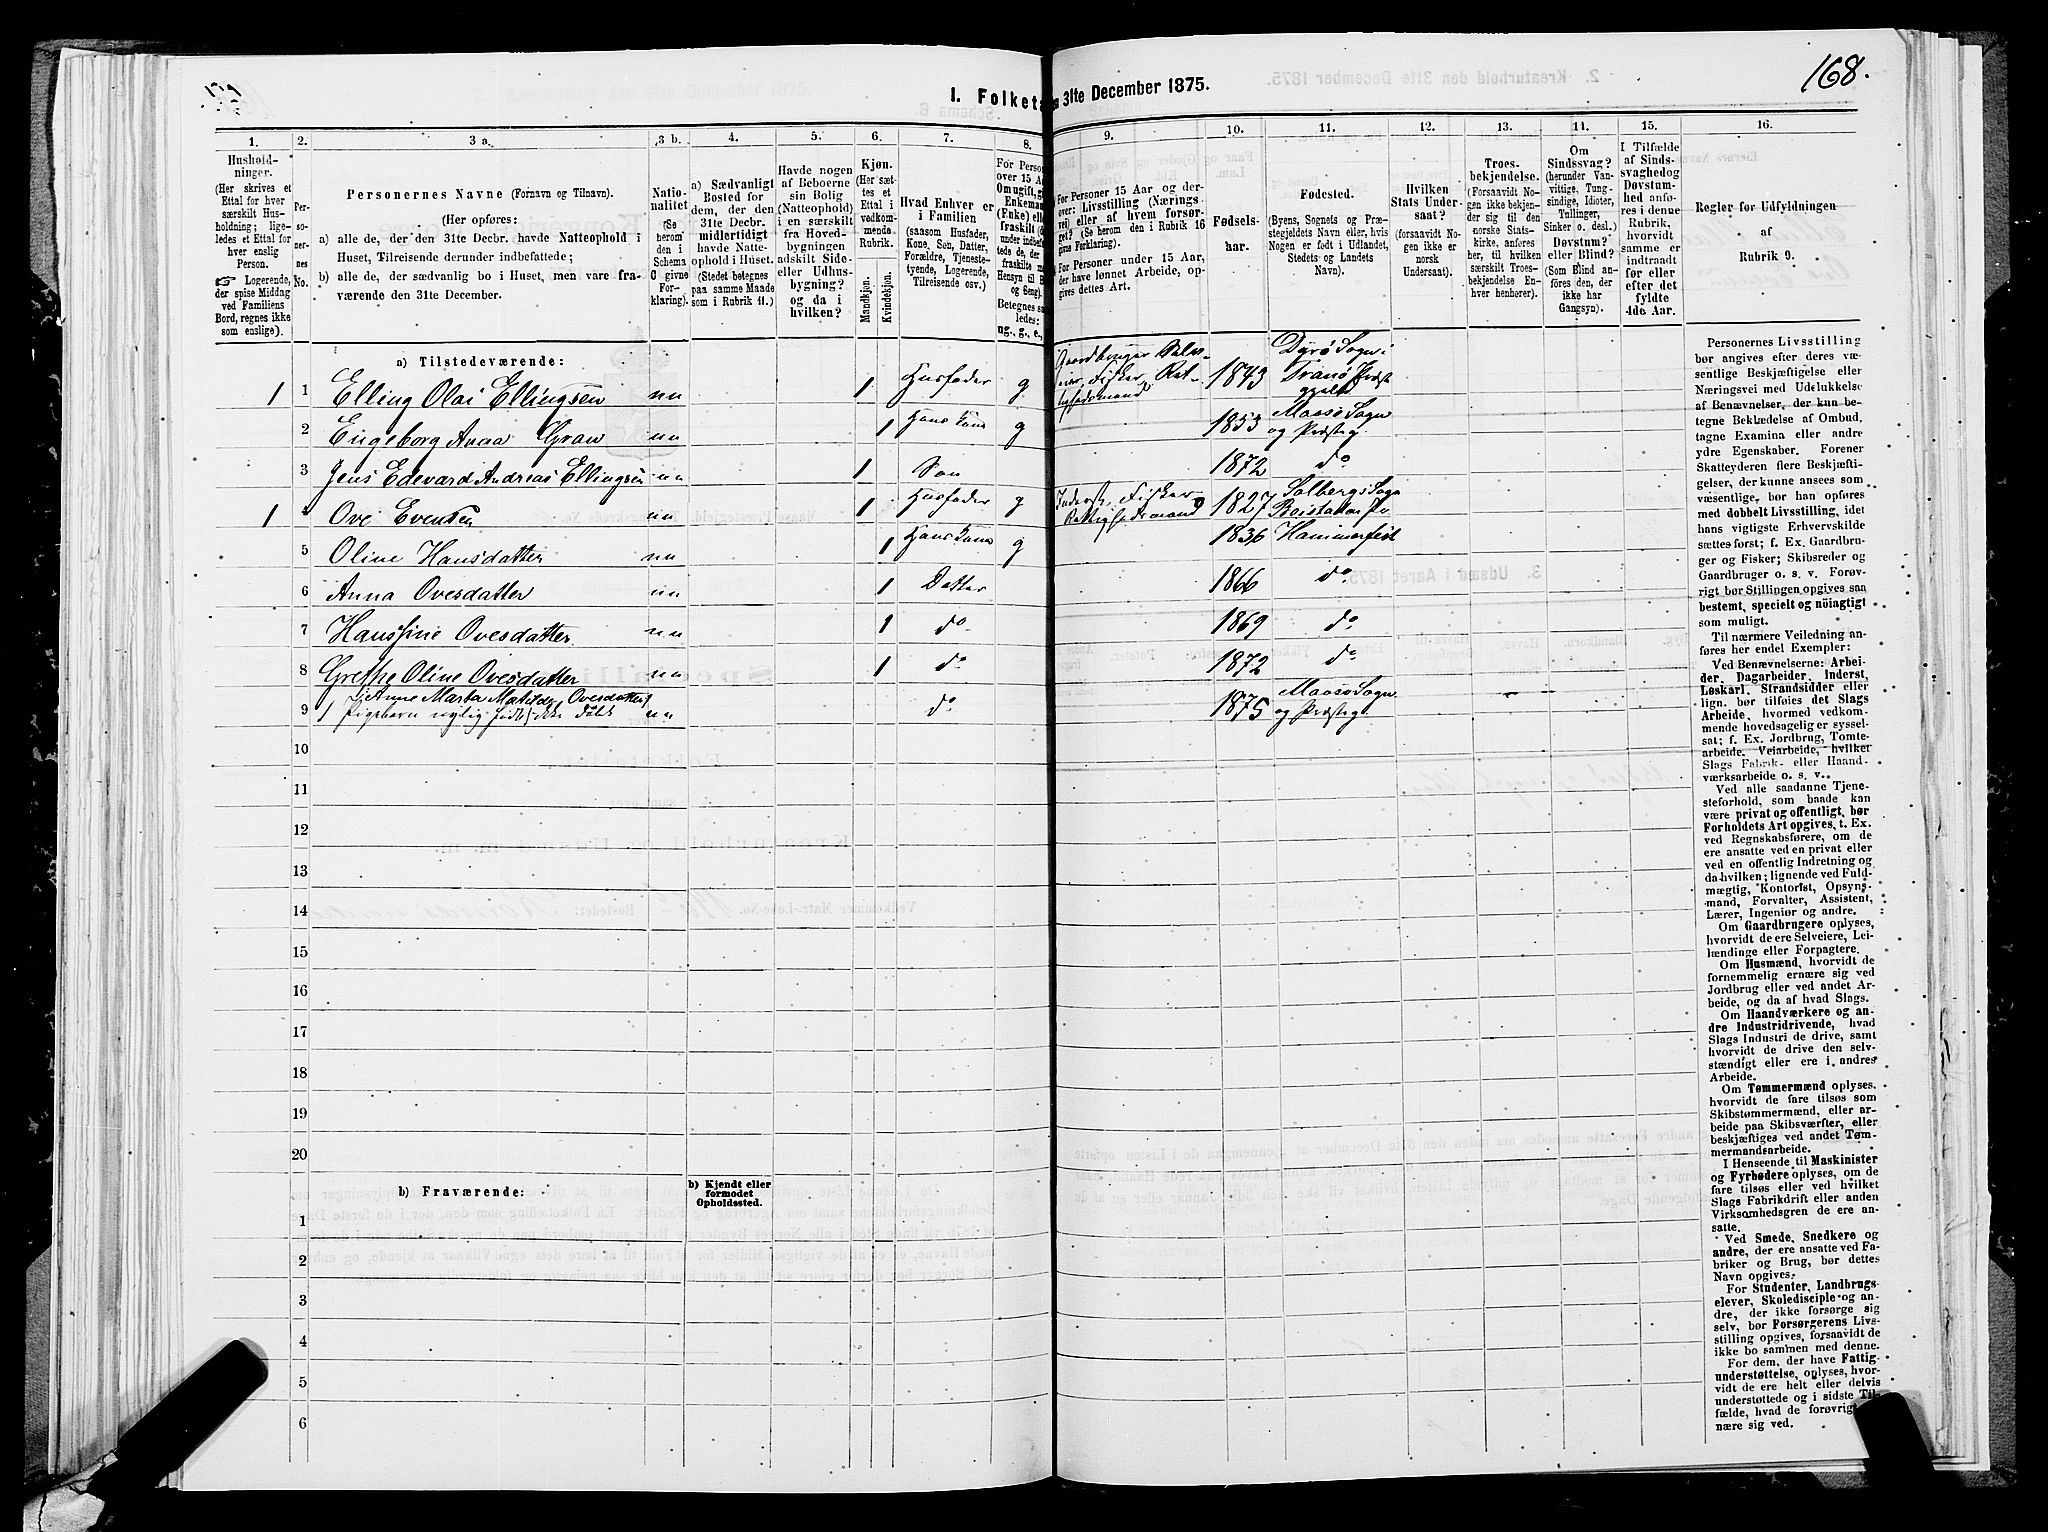 168.
I. Folketæ
31te December 1875.
1. 2. 3 a. 3 b. 4. 5. 6. 7. 8. 9. 10. 11. 12. 13. 14. 15. 16.
Hushold-
ninger.
(Her skrives et
Ettal for hver
særskilt Hus-
holdning; lige-
ledes et Ettal for
hver enslig
Person.
☞ Logerende,
der spise Middag
ved Familiens
Bord, regnes ikke
som enslige).
Per-
so-
ner-
nes
No.
Personernes Navne (Fornavn og Tilnavn).
(Her opføres:
a) alle de, der den 31te Decbr. havde Natteophold i
Huset, Tilreisende derunder indbefattede;
b) alle de, der sædvanlig bo i Huset, men vare fra-
værende den 31te December.
Natio-
nalitet
(Se
herom
den i
Schema
C givne
For-
klaring).
a) Sædvanligt
Bosted for
dem, der den
31te Decbr.
midlertidigt
havde Natte-
ophold i Huset.
(Stedet betegnes
paa samme Maade
som i Rubrik 11.)
Havde nogen
af Beboerne
sin Bolig
(Natteophold)
i en særskilt
fra Hoved-
bygningen
adskilt Side-
eller Udhus-
bygning?
og da i
hvilken?
Kjøn.
(Her sæt-
tes et
Ettal i
vedkom-
mende
Rubrik.
Mandkjøn.
Kvindekjøn.
Hvad Enhver er
i Familien
(saasom Husfader,
Kone, Søn, Datter,
Forældre, Tjeneste-
tyende, Logerende,
Tilreisende osv.)
For Person
over 15 A
Om ugift, gi
Enkeman
(Fnke) elle
fraskilt (d
under indbefat-
tede de, de
fraskilte m
Hensyn til B
og Seng).
Betegnes sa
ledes:
ng., g., e.,
For Personer 15 Aar og der-
over: Livsstilling (Nærings
vei) eller af hvem forsør-
get? (Se herom den i Rubrik 16
givne Forklaring).
For Personer under 15 Aar,
der have lønnet Arbeide, op-
gives dettes Art.
Fødsels-
aar.
Fødested.
(Byens, Sognets og Præ-
stegjeldets Navn eller, hvis
Nogen er født i Udlandet,
Stedets og Landets
Navn).
Hvilken
Stats Under-
saat?
(forsaavidt No-
gen ikke er
norsk
Undersaat).
Troes-
bekjendelse.
(Forsaavidt No-
gen ikke bekjen-
der sig til den
norske Stats-
kirke, anføres
her, til hvilken
særskilt Troes-
bekjendelse En-
hver henhører).
Om
Sindssvag?
(herunder Van-
vittige, Tung-
sindige, Idioter,
Tullinger,
Sinker o. desl.)
Døvstum?
eller Blind?
(Som Blind an-
føres den, der
ikke har
Gangsyn).
I Tilfælde
af Sinds-
svaghed og
Døvstum-
hed anfø-
res i denne
Rubrik,
hvorvidt
samme er
indtraadt
før eller
efter det
fyldte
4de Aar.
Regler for Udfyldningen
af
Rubrik 9.
a) Tilstedeværende:
1 1 Elling Olai Ellingsen nn 1 Husfader g Gaardbruger Fisker 1843 Dyrø Sogn i Tranø Præst
2 Engeborg Anna Gran nn 1 Hans Kone g 1853 Maasø Sogn og Præsteg
3 Jens Edevard Andreas Ellingsen nn 1 Søn 1872 do
1 4 Ove Evensen nn 1 Husfader g Inderst, Fisker 1827 Solbergs Sogn
5 Oline Hansdatter nn 1 Hans Kone g 1836 Hammerfest
6 Anna Ovesdatter nn 1 Datter 1866 do
7 Hanssine Ovesdatter nn 1 do 1869 do
8 Grethe Oline Ovesdatter nn 1 do 1872 do
9 Anne Marta Matilde Ovesdatter
1 Pigebarn nylig født ikke døbt nn do 1875 Maasø Sogn og Præsteg
10
11
12
13
14
15
16
17
18
19
20
b) Fraværende:
b) Kjendt eller
formodet
Opholdssted.
1
2
3
4
5
6
Personernes Livsstilling
bør angives efter deres væ-
sentlige Beskjæftigelse eller
Næringsvei med Udelukkelse
af Benævnelser, der kun be-
tegne Beklædelse af Ombud,
tagne Examina eller andre
ydre Egenskaber. Forener
Skatteyderen flere Beskjæfti-
gelser, der kunne ansees som
væsentlige, bør han opføres
med dobbelt Livsstilling, idet
hans vigtigste Erhvervskilde
sættes først; f. Ex. Gaardbru-
ger og Fisker; Skibsreder og
Gaardbruger o. s. v. Forøv-
rigt bør Stillingen opgives saa
bestemt, specielt og nöiagtigt
som muligt.
Til nærmere Veiledning an-
føres her endel Exempler:
Ved Benævnelserne: Arbei-
der, Dagarbeider, Inderst,
Løskarl, Strandsidder eller
lign. bør tilføies det Slags
Arbeide, hvormed vedkom-
mende hovedsagelig er syssel-
sat; f. Ex. Jordbrug, Tomte-
arbeide, Veiarbeide, hvilket
Slags Fabrik- eller Haand-
værksarbeide o. s. v.
Ved alle saadanne Tjene-
steforhold, som baade kan
være privat og offentligt, bør
Forholdets Art opgives, t. Ex.
ved Regnskabsførere, om de
ere ansatte ved en privat eller
ved en offentlig Indretning og
da hvilken; lignende ved Fuld-
mægtig, Kontorist, Opsyns-
mand, Forvalter, Assistent,
Lærer, Ingeniør og andre.
Om Gaardbrugere oplyses,
hvorvidt de ere Selveiere, Lei-
lændinge eller Forpagtere.
Om Husmænd, hvorvidt de
fornemmelig ernære sig ved
Jordbrug eller ved andet Ar-
beide, og da af hvad Slags.
Om Haandværkere og an-
dre Industridrivende, hvad
Slags Industri de drive, samt
hvorvidt de drive den selv-
stændigt eller ere i andres
Arbeide.
Om Tømmermænd oplyses,
hvorvidt de fare tilsøs som
Skibstømmermænd, eller ar-
beide paa Skibsværfter, eller
beskjæftiges ved andet Tøm-
mermandsarbeide.
I Henseende til Maskinister
og Fyrbødere oplyses, om de
fare tilsøs eller ved hvilket
Slags Fabrikdrift eller anden
Virksomhedsgren de ere an-
satte.
Ved Smede, Snedkere og
andre, der ere ansatte ved Fa-
briker og Brug, bør dettes
Navn opgives.
For Studenter, Landbrugs-
elever, Skoledisciple og an-
dre, der ikke forsørge sig
selv, bør Forsørgerens Livs-
stilling opgives, forsaavidt de
ikke bo sammen med denne.
For dem, der have Fattig-
understøttelse, oplyses, hvor-
vidt de ere helt eller delvis
understøttede og i sidste Til-
fælde, hvad de forøvrigt
nære sig ved.